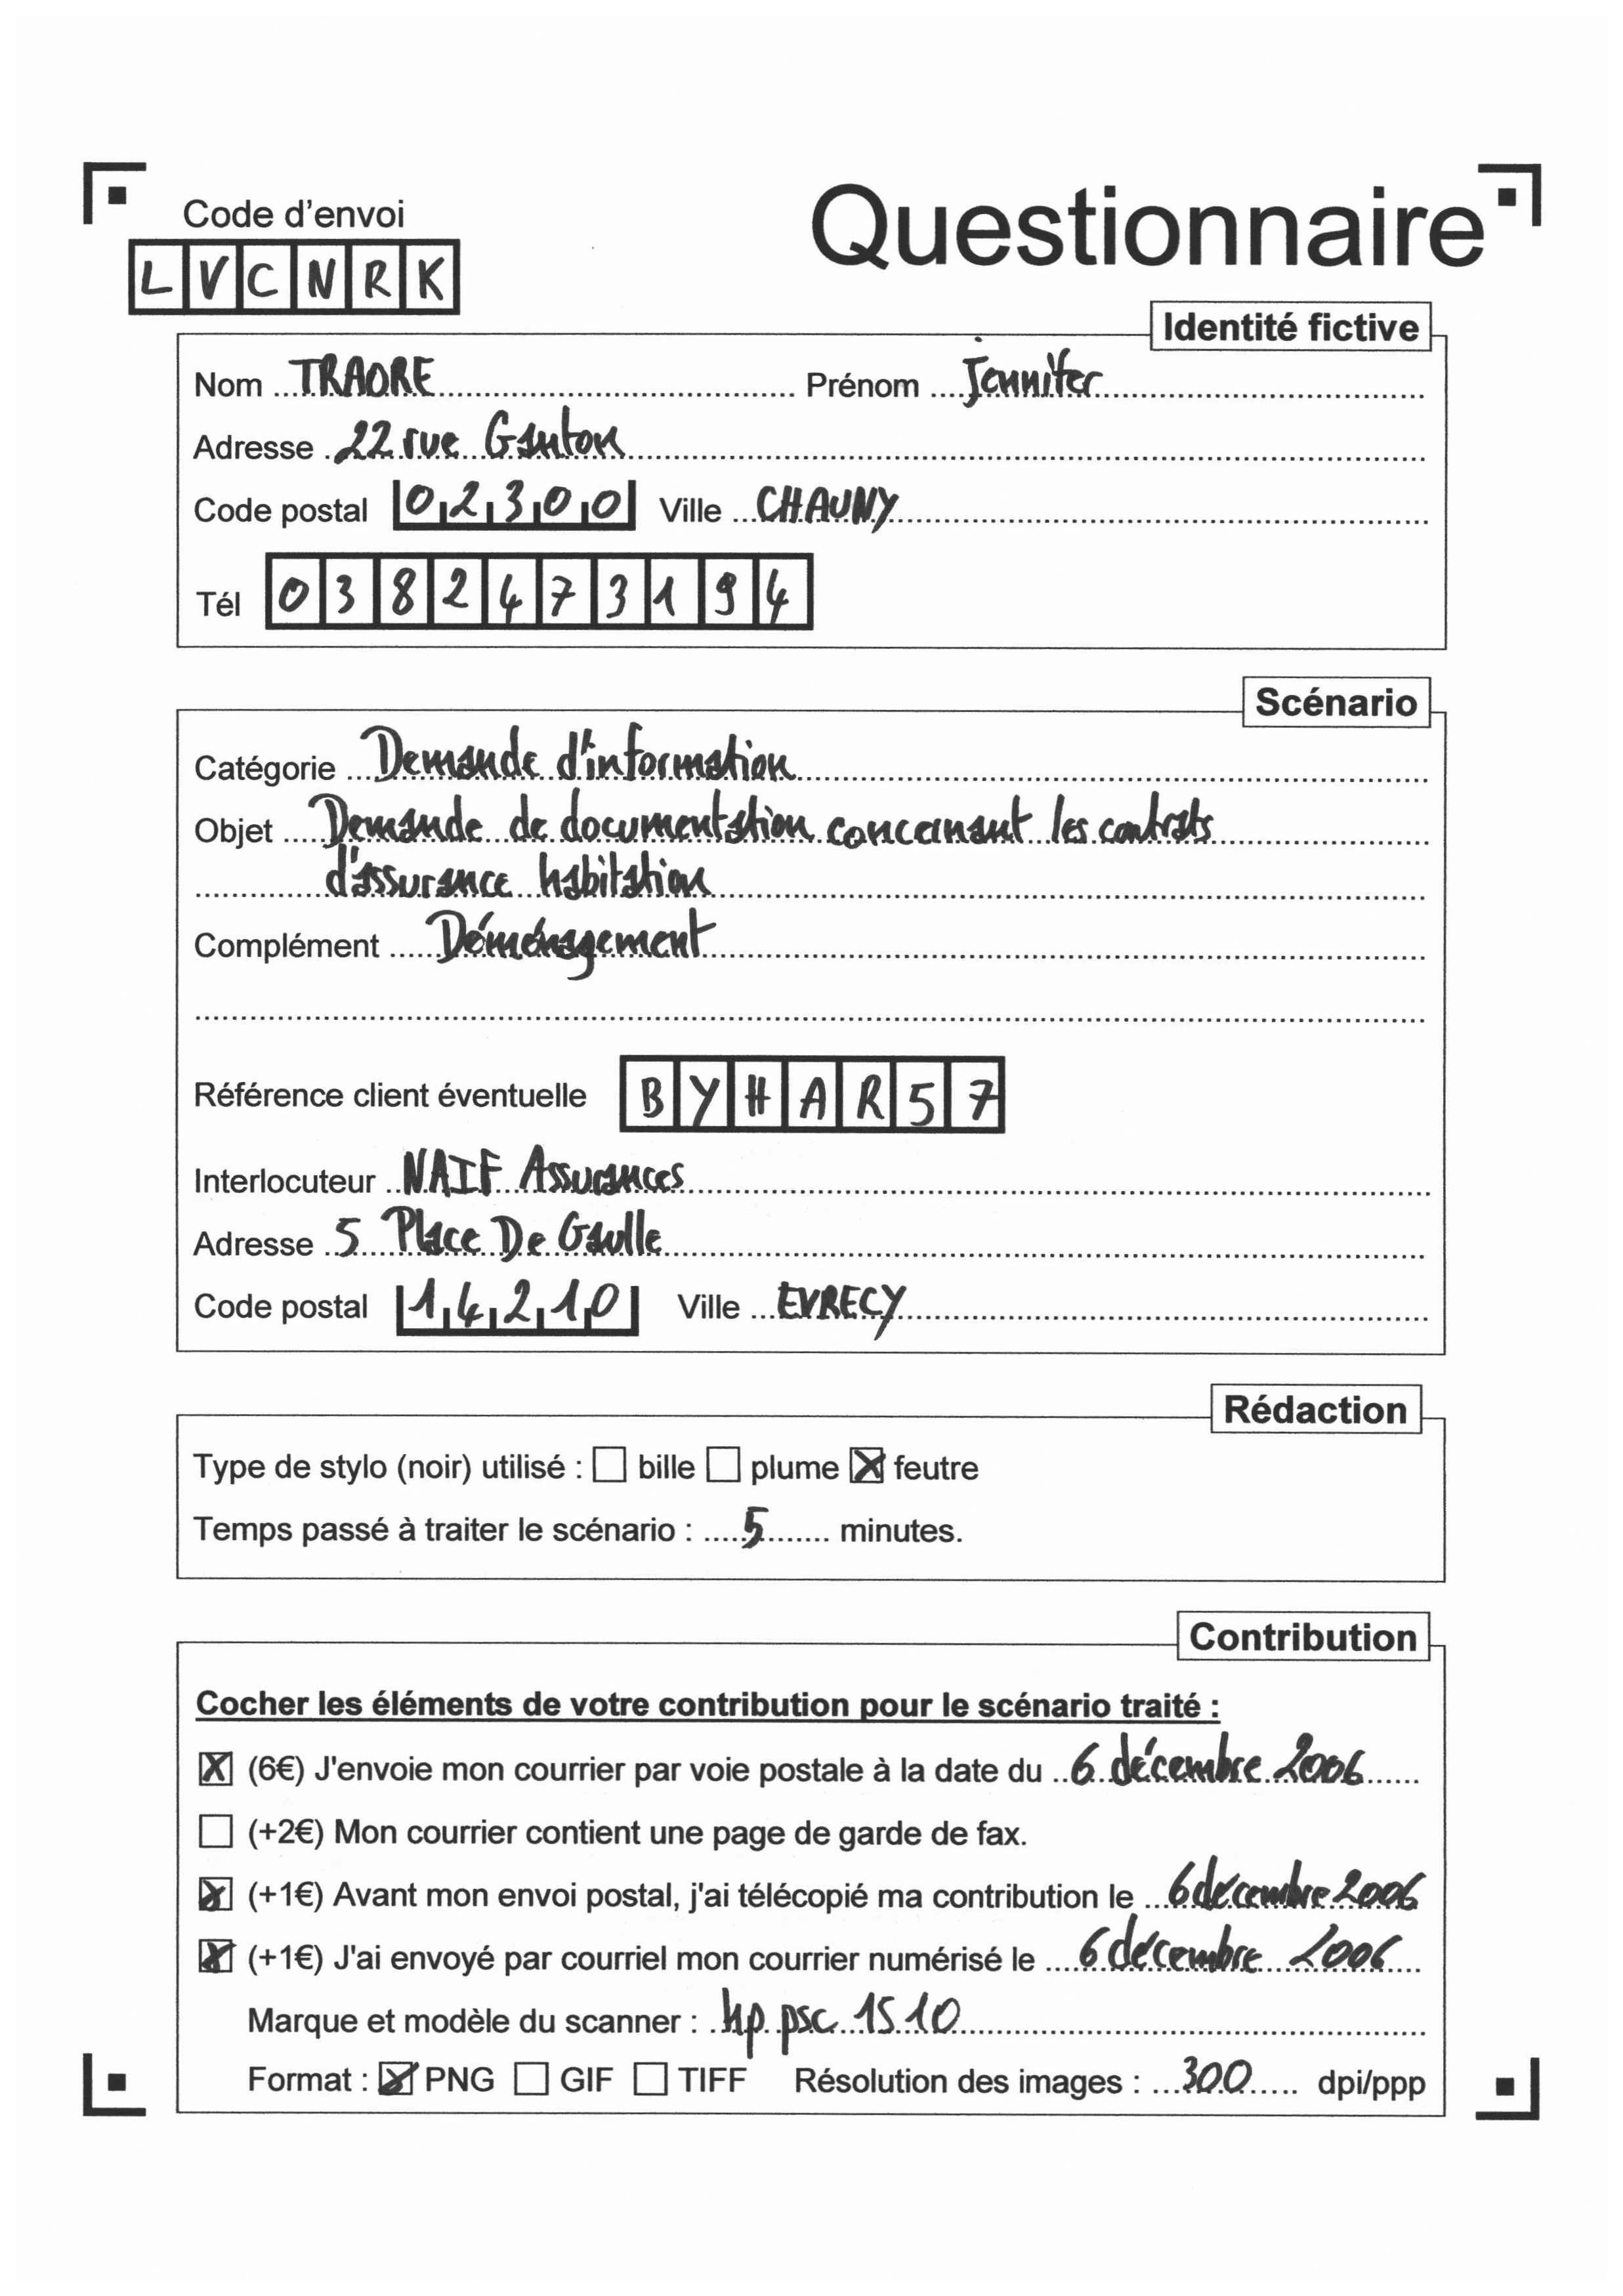 Code d'envoi
Questionnaire
L V C N R K
Identité fictive
Nom TRAORE Prénom Jennifer
Adresse 22 rue Ganton
Code postal 02300 Ville CHAUNY
Tél 0382473194
Scénario
Catégorie Demande d'information
Objet Demande de documentation concernant les contrats
d'assurance habitation
Complément Déménagement
Référence client éventuelle BYHAR57
Interlocuteur NAIF Assurances
Adresse 5 Place De Gaulle
Code postal 14210 Ville EVRECY
Rédaction
Type de stylo (noir) utilisé : ☐ bille ☐ plume ☒ feutre
Temps passé à traiter le scénario : 5 minutes.
Contribution
Cocher les éléments de votre contribution pour le scénario traité :
☒ (6€) J'envoie mon courrier par voie postale à la date du 6 décembre 2006
☐ (+2€) Mon courrier contient une page de garde de fax.
☒ (+1€) Avant mon envoi postal, j'ai télécopié ma contribution le 6 décembre 2006
☒ (+1€) J'ai envoyé par courriel mon courrier numérisé le 6 décembre 2006
Marque et modèle du scanner : hp psc 1510
Format : ☒ PNG ☐ GIF ☐ TIFF Résolution des images : 300 dpi/ppp